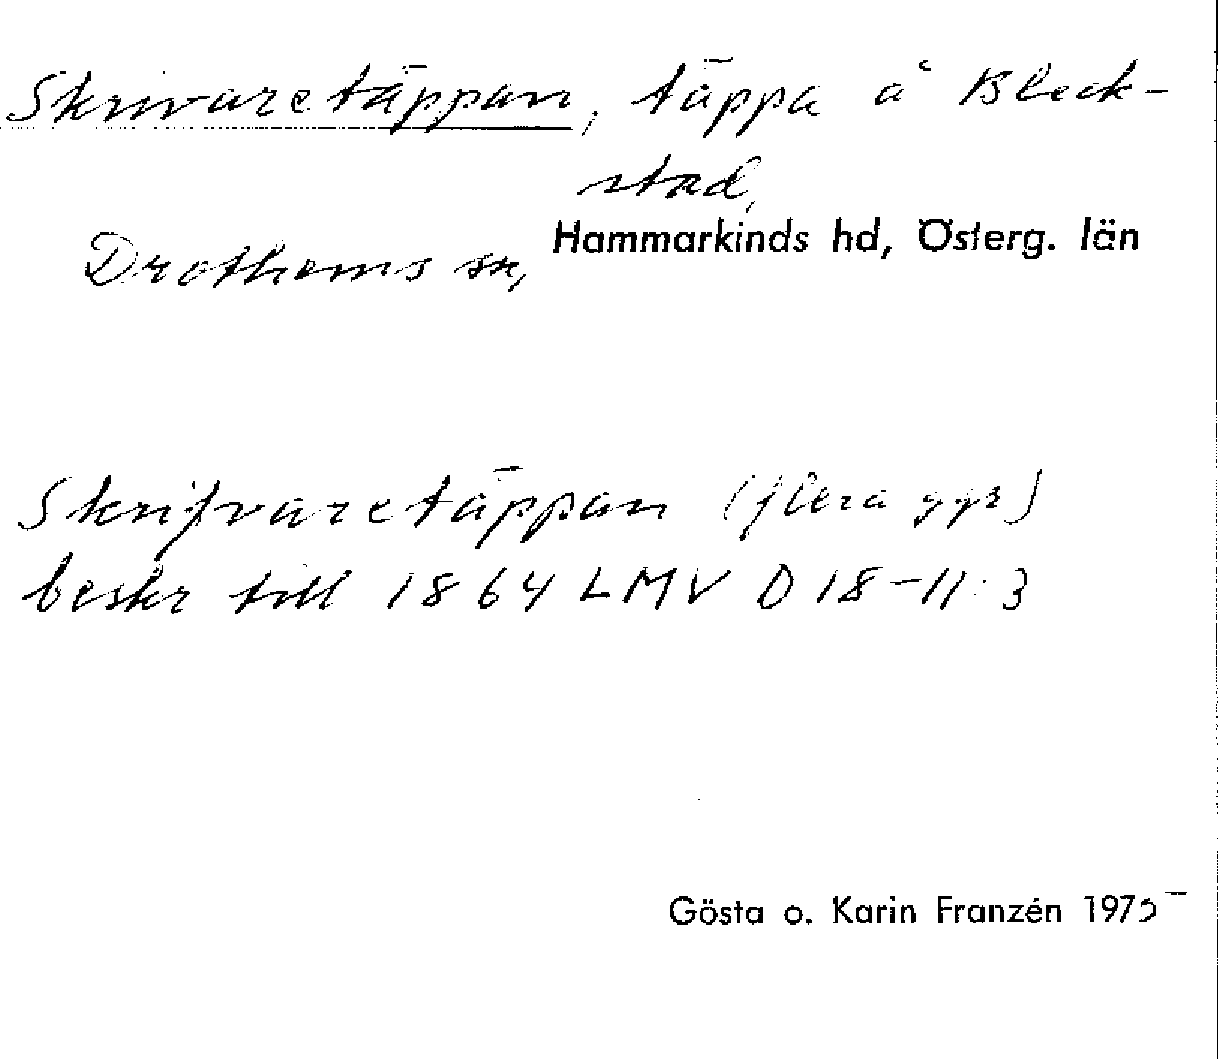 Skrivaretäppan, täppa å Bleck-
stad,
Drothems sn, Hammarkinds hd, Österg. län
Skrifvaretäppan (flera ggr)
beskr till 1864 LMV D 18-11:3
Gösta o. Karin Franzén 1975